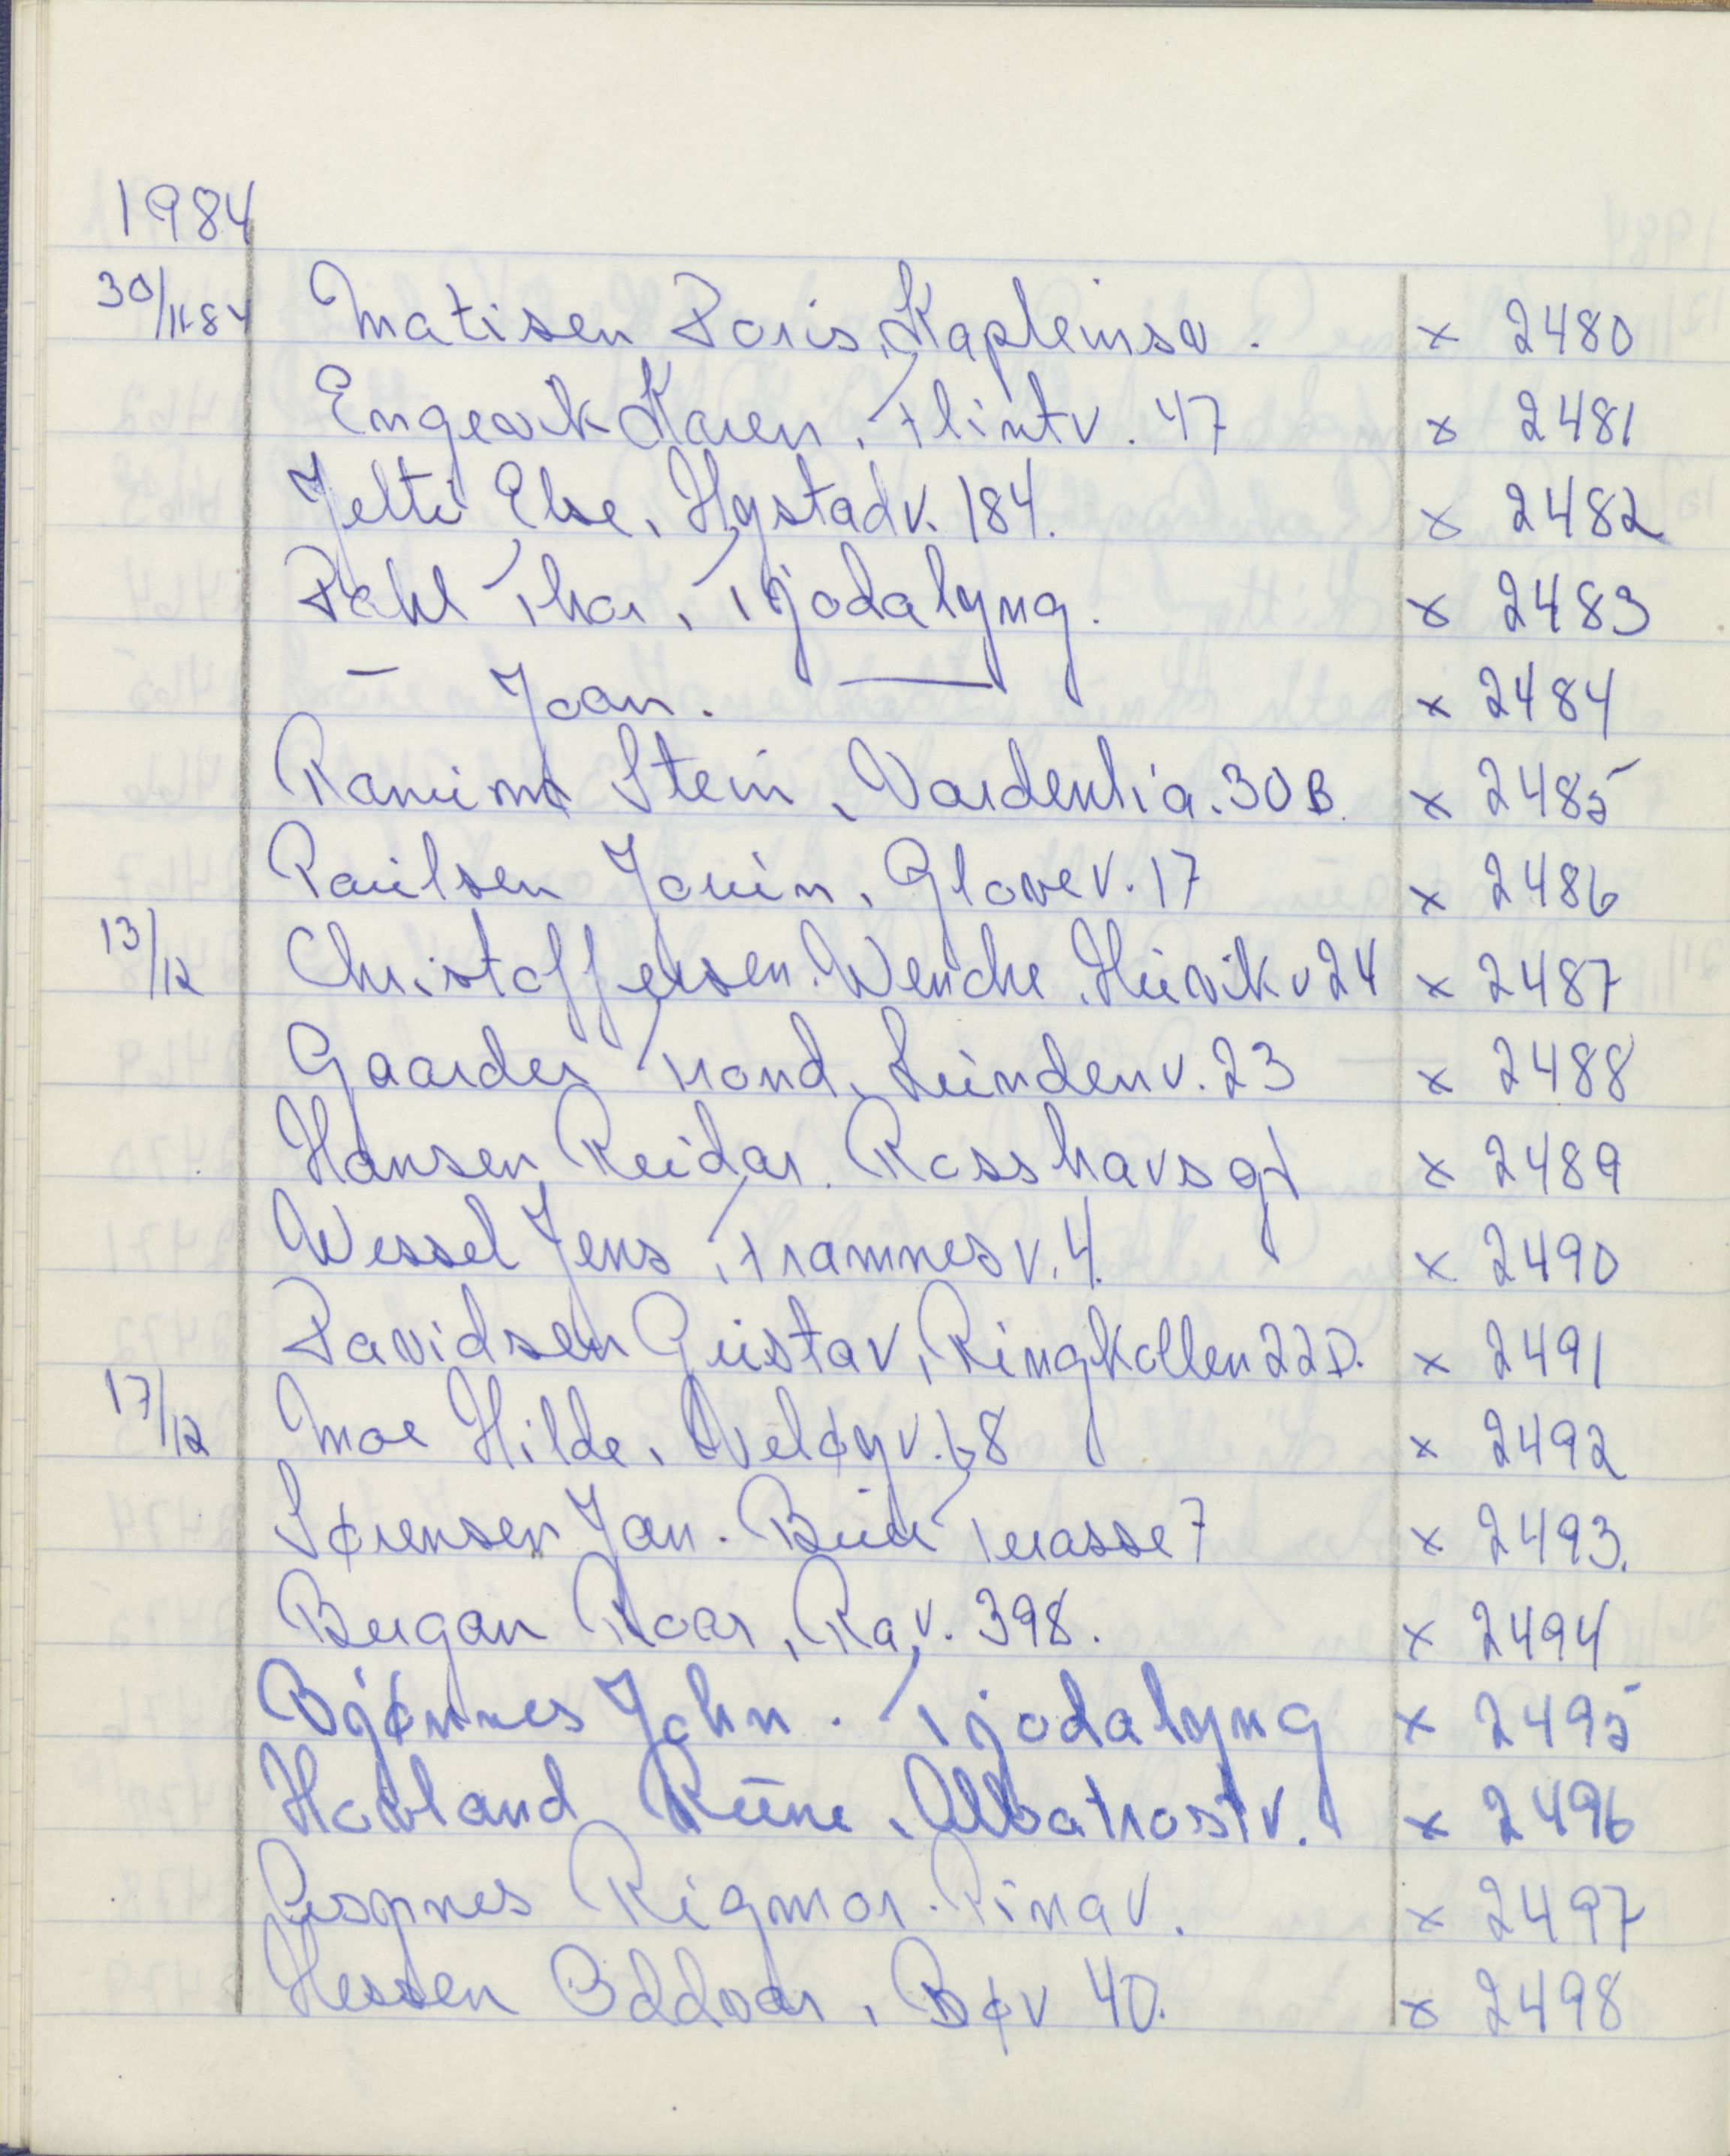 1984
30/11-84 Matisen Doris, Kapleinsv. x 2480
Engevik Karen, Flintv. 47 x 2481
Jelti Else, Hystadv. 184. x 2482
Dahl Thor, Tjodalyng. x 2483
— Joan. — x 2484
Stein, Vardenlia. 30 B. x 2485
Paulsen Jouin, Glovev. 17 x 2486
13/12 Christoffersen. Wenche, Huvikv 24 x 2487
Gaarder Trond, Lundenv. 23 x 2488
Hansen Reidar. Rosshavsgt x 2489
Wessel Jens, Framnesv. 4. x 2490
Davidsen Gustav, Ringkollen 22 D. x 2491
17/12 Moe Hilde, Veløyv. 68 x 2492
Sørensen Jan. Bue Terasse 7 x 2493.
Bergan Roar, Rav. 398. x 2494
Bjønnes John. Tjodalyng x 2495
Hovland Rune, Albatrostv. x 2496
Rigmor. Pinav. x 2497
Hessen Oddvar, Bøv 40. x 2498